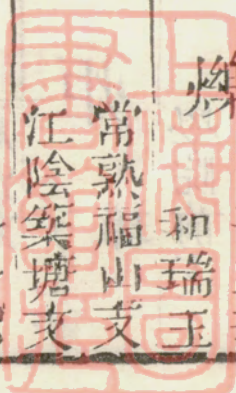 煥
和瑞玉
常熟福山支
江陰築塘支